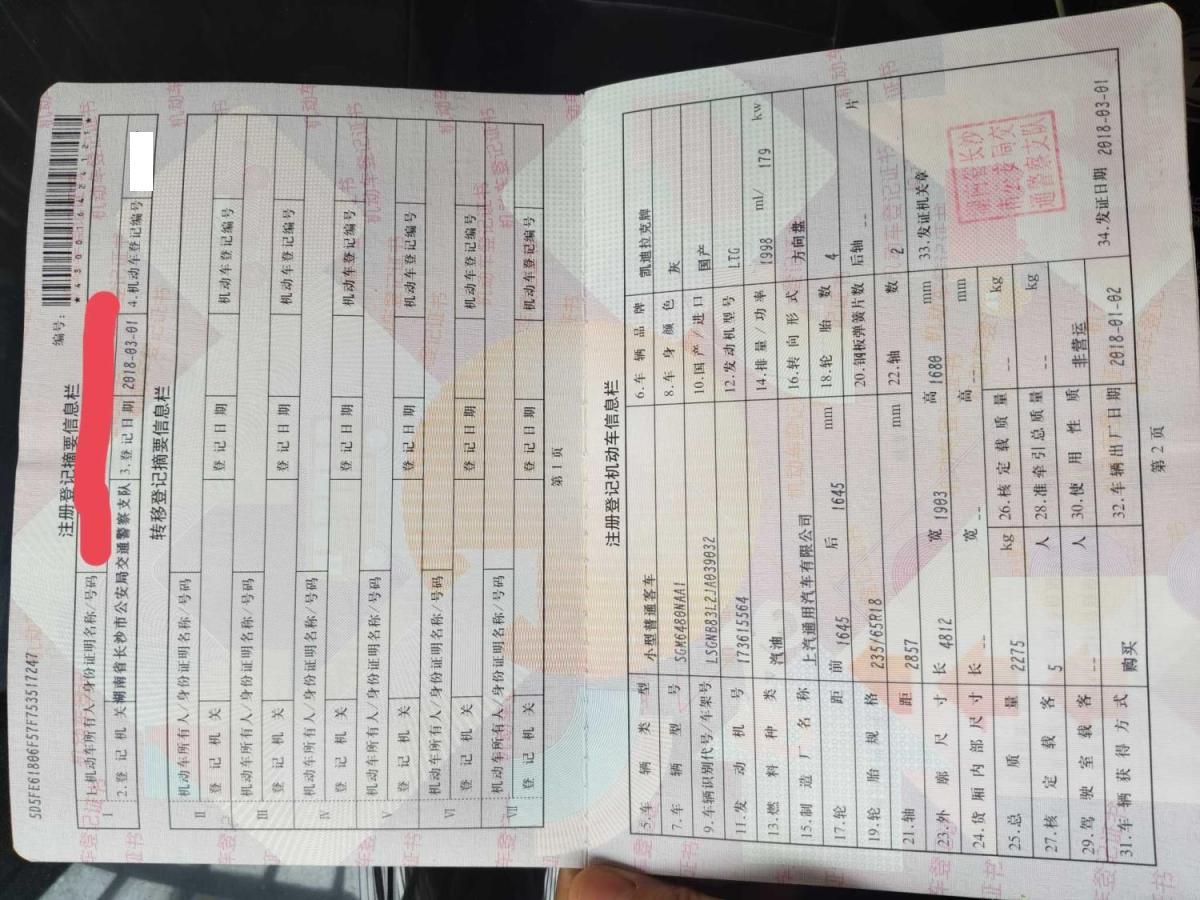 5D5FE61806F57F753517247
注册登记摘要信息栏
编号:
*430016424121*
I 1.机动车所有人/身份证明名称/号码
2.登记机关 湖南省长沙市公安局交通警察支队 3.登记日期 2018-03-01 4.机动车登记编号
转移登记摘要信息栏
II 机动车所有人/身份证明名称/号码
登记机关 登记日期 机动车登记编号
III 机动车所有人/身份证明名称/号码
登记机关 登记日期 机动车登记编号
IV 机动车所有人/身份证明名称/号码
登记机关 登记日期 机动车登记编号
V 机动车所有人/身份证明名称/号码
登记机关 登记日期 机动车登记编号
VI 机动车所有人/身份证明名称/号码
登记机关 登记日期 机动车登记编号
VII 机动车所有人/身份证明名称/号码
登记机关 登记日期 机动车登记编号
第1页
注册登记机动车信息栏
5.车辆类型 小型普通客车 6.车辆品牌 凯迪拉克牌
7.车辆型号 SGM6480NAA1 8.车身颜色 灰
9.车辆识别代号/车架号 LSGNB83L2JA039032 10.国产/进口 国产
11.发动机号 173615564 12.发动机型号 LTG
13.燃料种类 汽油 14.排量/功率 1998 ml/ 179 kw
15.制造厂名称 上汽通用汽车有限公司 16.转向形式 方向盘
17.轮距 前 1645 后 1645 mm 18.轮胎数 4
19.轮胎规格 235/65R18 20.钢板弹簧片数 后轴 -- 片
21.轴距 2857 mm 22.轴数 2
23.外廓尺寸 长 4812 宽 1903 高 1680 mm 33.发证机关章
24.货厢内部尺寸 长 -- 宽 -- 高 -- mm
25.总质量 2275 kg 26.核定载质量 -- kg
27.核定载客 5 人 28.准牵引总质量 -- kg
29.驾驶室载客 -- 人 30.使用性质 非营运
31.车辆获得方式 购买 32.车辆出厂日期 2018-01-02 34.发证日期 2018-03-01
湖南省长沙
市公安局交
通警察支队
第2页